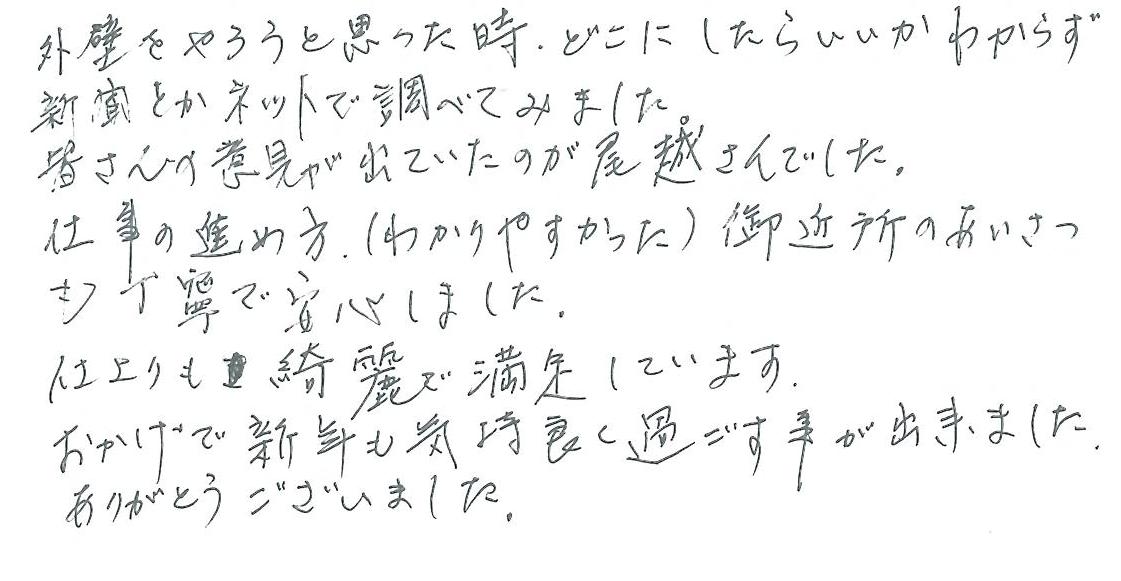 外壁をやろうと思った時、どこにしたらいいかわからず
新聞とかネットで調べてみました。
皆さんの意見が出ていたのが尾越さんでした。
仕事の進め方、(わかりやすかった)御近所のあいさつ
も丁寧で安心しました。
仕上りも綺麗で満足しています。
おかげで新年も気持良く過ごす事が出来ました。
ありがとうございました。